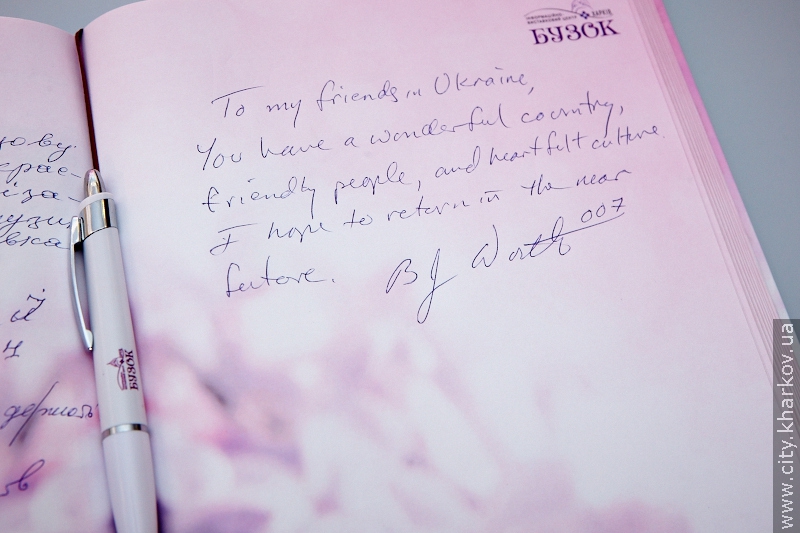 БУЗОК
To my friends in Ukraine,
You have a wonderful country,
friendly people, and heartfelt culture.
I hope to return in the near
future. BJ Worth 007
БУЗОК
www.city.kharkov.ua